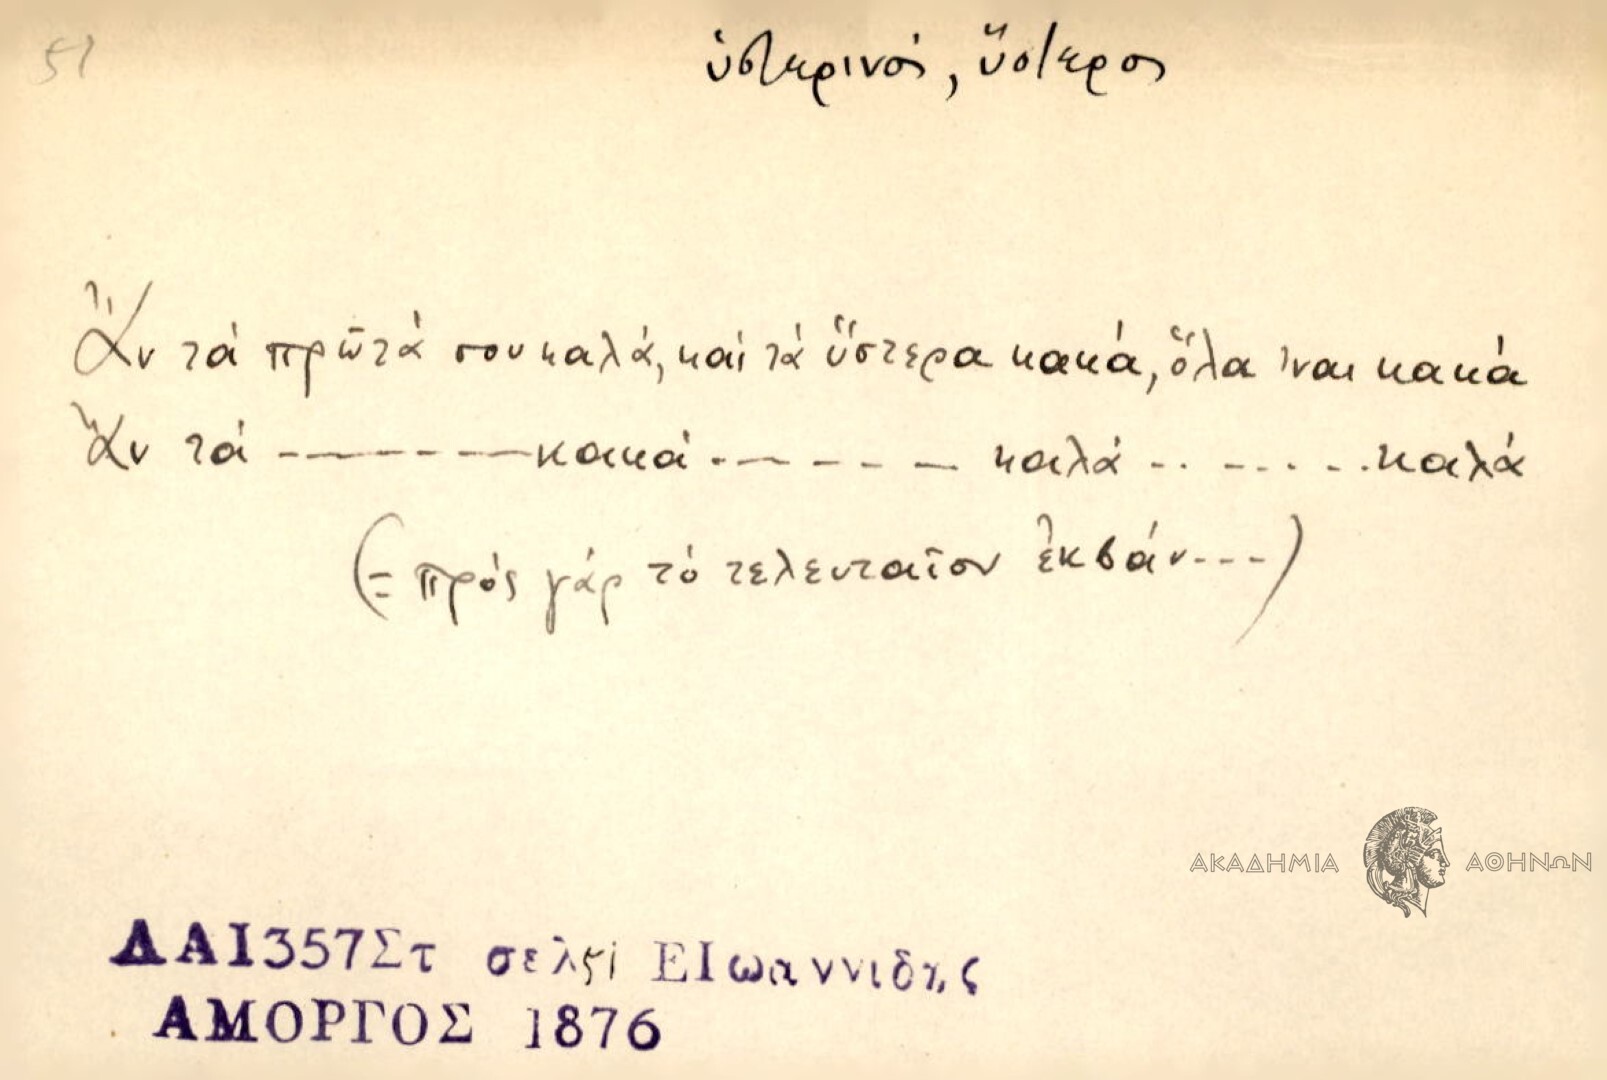 51
ὑστερινός, ὕστερος
Ἂν τά πρῶτά σου καλά, καί τά ὕστερα κακά, ὅλα 'ναι κακά
Ἂν τά --------- κακά - - - - - - καλά - - - - - - καλά
(= πρός γάρ τό τελευταῖον ἐκβάν - - - )
ΑΚΑΔΗΜΙΑ ΑΘΗΝΩΝ
ΔΑΙ357Στ σελ51 ΕΙωαννιδης
ΑΜΟΡΓΟΣ 1876